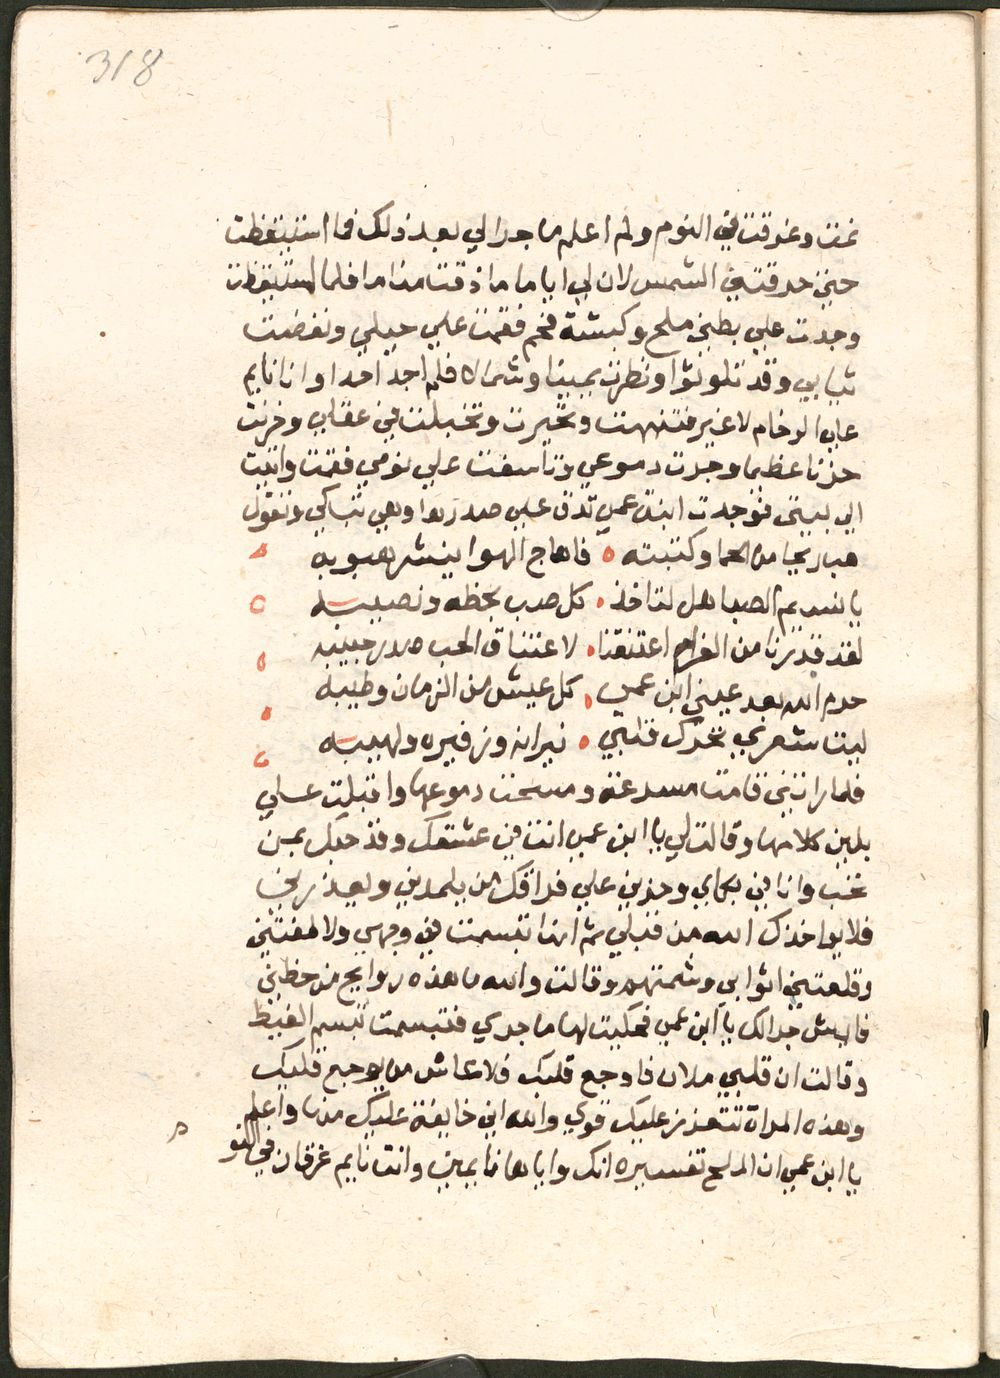 318
نمت وغرقت في النوم ولم اعلم ما جرا لي بعد ذلك فما استيقظت
حتي حرقتني الشمس لان لي اياما ما اذقت مناما فلما استيقظت
وجدت علي بطني ملح وكبشة فحم فقمت علي حيلي ونفضت
ثيابي وقد تلوثوا ونظرت يمينا وشمالا فلم اجد احدا وانا نايم
علي الرخام لا غير فتنهدت وتحيرت وتخبلت في عقلي وحزنت
حزنا عظيما وجرت دموعي وتاسفت علي نومي فقمت واتيت
الي بيتي فوجدت ابنة عمي تدق علي صدرها وهي تباكي وتقول
هب ريحا من الحما وكتبته فاهاج الهوا ينشر هبوبه
يا نسيم الصبا هل لنا خذ كل صب بحظه ونصيبه
لقد قدرنا من الغرام اعتنقنا لاعتناق الحب صدر حبيبه
حرم الله بعد عيني ابن عمي كل عيش من الزمان وطيبه
ليت شعري تحرك قلبي نيرانه وزفيره ولهيبه
فلما راتني قامت مسرعة ومسحت دموعها واقبلت علي
بلين كلامها وقالت لي يا ابن عمي انت في عشقك وقد حبك بمن
تحب وانا في بكاي وحزني علي فراقك من يلمني ويعذرني
فلا يواخذك الله من قبلي ثم انها تبسمت في وجهي ولاطفتني
وقلعتني اثوابي وشمتهم وقالت والله ما هذه روايح من حظي
فايش جرا لك يا ابن عمي فحكيت لها ما جري فتبسمت تبسم الغيظ
وقالت ان قلبي ملان فاوجع قلبك فلا عاش من يوجع قلبك
وهذه المراة تتعذر عليك قوي والله اني خايفة عليك منها واعلم
يا ابن عمي ان الملح تفسيره انك واياها نايمين وانت نايم غرقان في النو